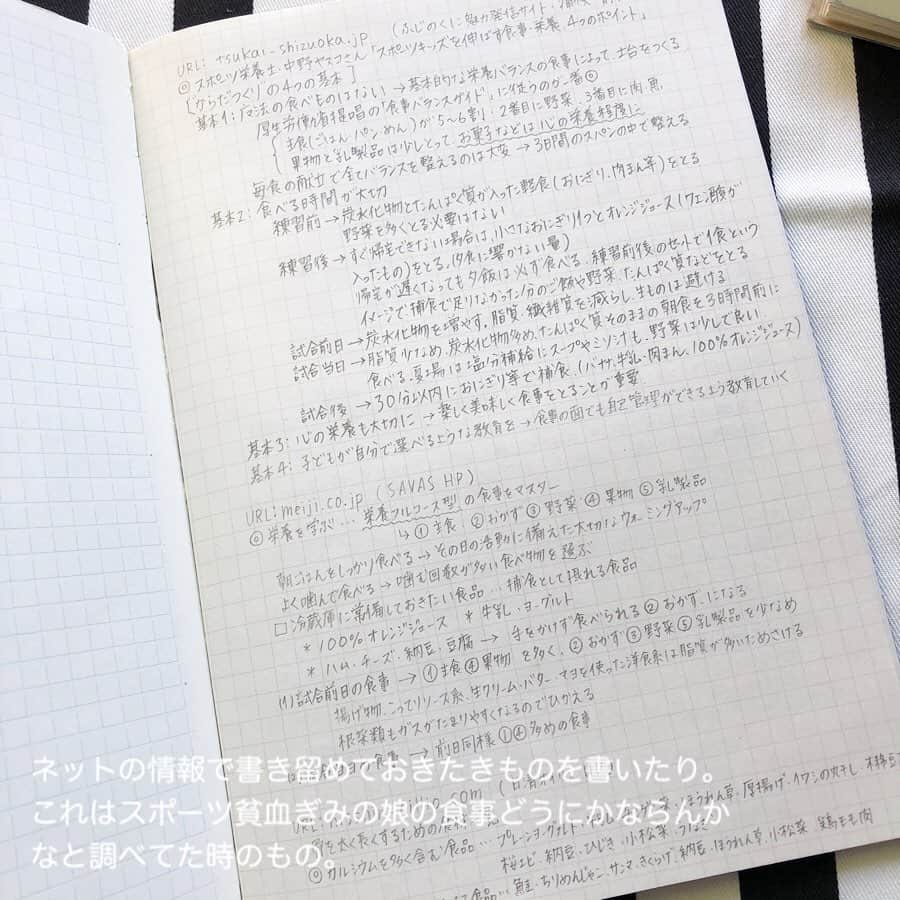 URL: tsukai-shizuoka.jp (ふじのくに魅力発信サイト:
◎スポーツ栄養士、中野ヤスコさん「スポーツキッズを伸ばす食事・栄養、4つのポイント」
[からだづくりの4つの基本]
基本1:魔法の食べものはない → 基本的な栄養バランスの食事によって、土台をつくる
厚生労働省提唱の「食事バランスガイド」に従うのが一番◎
主食(ごはん パン めん)が5〜6割、2番目に野菜、3番目に肉魚
果物と乳製品は少しとって、お菓子などは心の栄養程度に
毎食の献立で全てバランスを整えるのは大変 → 3日間のスパンの中で整える
基本2:食べる時間が大切
練習前 → 炭水化物とたんぱく質が入った軽食(おにぎり、肉まん等)をとる
野菜を多くとる必要はない
練習後 → すぐ帰宅できない場合は、小さなおにぎり1つとオレンジジュース(クエン酸が
入ったもの)をとる、(夕食に響かない量)
帰宅が遅くなっても夕飯は必ず食べる、練習前後のセットで1食という
イメージで補食で足りなかった分のご飯や野菜、たんぱく質などをとる
試合前日 → 炭水化物を増やす。脂質・繊維質を減らし、生ものは避ける
試合当日 → 脂質少なめ、炭水化物多め、たんぱく質そのままの朝食を3時間前に
食べる、夏場は塩分補給にスープやミソ汁も、野菜は少しで良い
試合後 → 30分以内におにぎり等で補食、(バナナ、牛乳、肉まん、100%オレンジジュース)
基本3:心の栄養も大切に → 楽しく美味しく食事をとることが重要
基本4:子どもが自分で選べるような教育を → 食事の面でも自己管理ができるよう教育していく
URL:meiji.co.jp (SAVAS HP)
◎栄養を学ぶ… 栄養フルコース型の食事をマスター
↳①主食 ②おかず ③野菜 ④果物 ⑤乳製品
朝ごはんをしっかり食べる → その日の活動に備えた大切なウォーミングアップ
よく噛んで食べる → 噛む回数が多い食べ物を選ぶ
□冷蔵庫に常備しておきたい食品 … 補食として摂れる食品
*100%オレンジジュース *牛乳・ヨーグルト
*ハム・チーズ・納豆・豆腐 → 手をかけず食べられる②おかずになる
(1)試合前日の食事 → ①主食④果物 を多く、②おかず③野菜⑤乳製品を少なめ
揚げ物、こってりソース系、生クリーム・バター・マヨを使った洋食系は脂質が多いためさける
根菜類もガスがたまりやすくなるのでひかえる
食事 → 前日同様①④多めの食事
ネットの情報で書き留めておきたきものを書いたり。
これはスポーツ貧血ぎみの娘の食事どうにかならんか
なと調べてた時のもの。
◎カルシウムを多く含む食品 … プレーンヨーグルト
ほうれん草、厚揚げ・イワシの丸干し、木綿豆
桜エビ・納豆・ひじき・小松菜・うなぎ
鮭・ちりめんじゃこ・サンマ・きくらげ・納豆・ほうれん草、小松菜 鶏もも肉